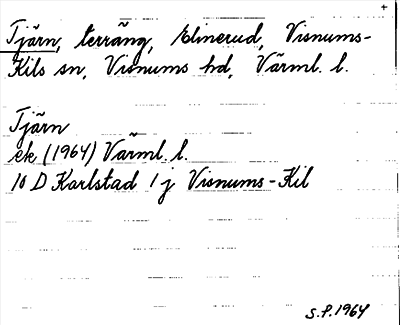 +
Tjärn, terräng, Elmerud, Visnums-
Kils sn, Visnums hd, Värml. l.
Tjärn
ek (1964) Värml. l.
10 D Karlstad 1 j Visnums-Kil
S.P. 1964